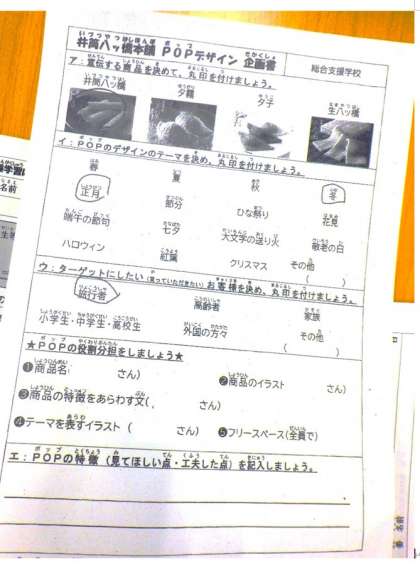 井筒八ッ橋本舗 POPデザイン 企画書
総合支援学校
ア:宣伝する商品を決めて、丸印を付けましょう。
井筒八ッ橋 夕霧 夕子 生八ッ橋
イ:POPのデザインのテーマを決め、丸印を付けましょう。
春 夏 秋 冬
正月 節分 ひな祭り 花見
端午の節句 七夕 大文字の送り火 敬老の日
ハロウィン 紅葉 クリスマス その他
( )
ウ:ターゲットにしたい(買っていただきたい)お客様を決め、丸印を付けましょう。
旅行者 高齢者 家族
小学生・中学生・高校生 外国の方々 その他
( )
★POPの役割分担をしましょう★
❶商品名: さん) ❷商品のイラスト さん)
❸商品の特徴をあらわす文(、 さん)
❹テーマを表すイラスト ( さん) ❺フリースペース(全員で)
エ:POPの特徴(見てほしい点・工夫した点)を記入しましょう。
名前